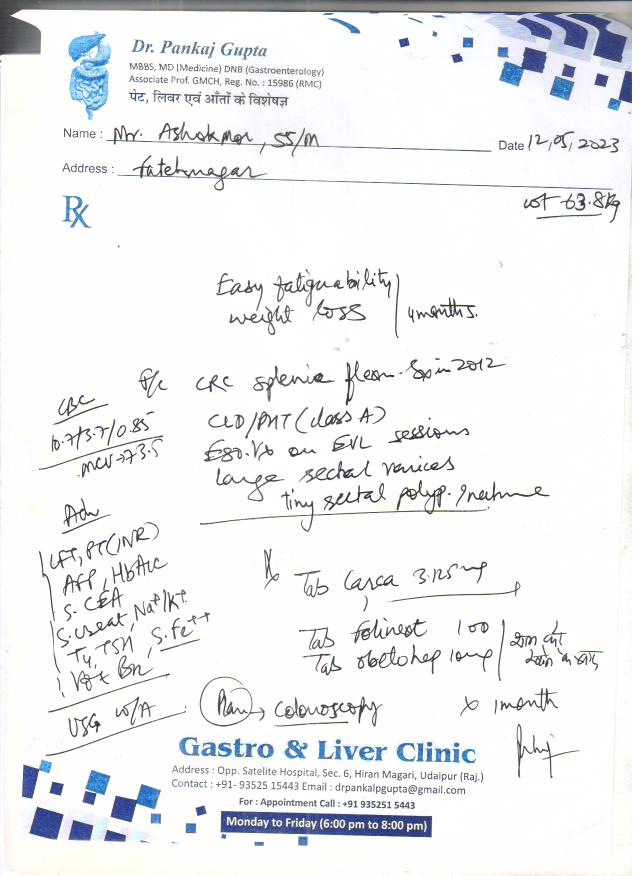 Dr. Pankaj Gupta
MBBS, MD (Medicine) DNB (Gastroenterology)
Associate Prof. GMCH, Reg. No. : 15986 (RMC)
पेट, लिवर एवं आँतों के विशेषज्ञ
Name : Mr. Ashokmor, 55/M Date 12/05/2023
Address : Fatehnagar
Rx
wt 63.8kg
Easy fatiguability
weight loss
4months.
CRC splenic in 2012
CLD/PHT (class A)
on EVL sessions
large rectal varices
tiny rectal polyp.
CBC
10.7/3.7/0.85
mcv→73.5
Adv
LFT, PT(INR)
AFP, HbA1c
S. CEA
S. creat, Na+/K+
T4, TSH, S. Fe++
USG W/A
Rx
Tab Carca 3.125 mg
Tab 100
Tab obetohep 10mg
x 1month
Plan → colonoscopy
Gastro & Liver Clinic
Address : Opp. Satelite Hospital, Sec. 6, Hiran Magari, Udaipur (Raj.)
Contact : +91- 93525 15443 Email : drpankalpgupta@gmail.com
For : Appointment Call : +91 935251 5443
Monday to Friday (6:00 pm to 8:00 pm)